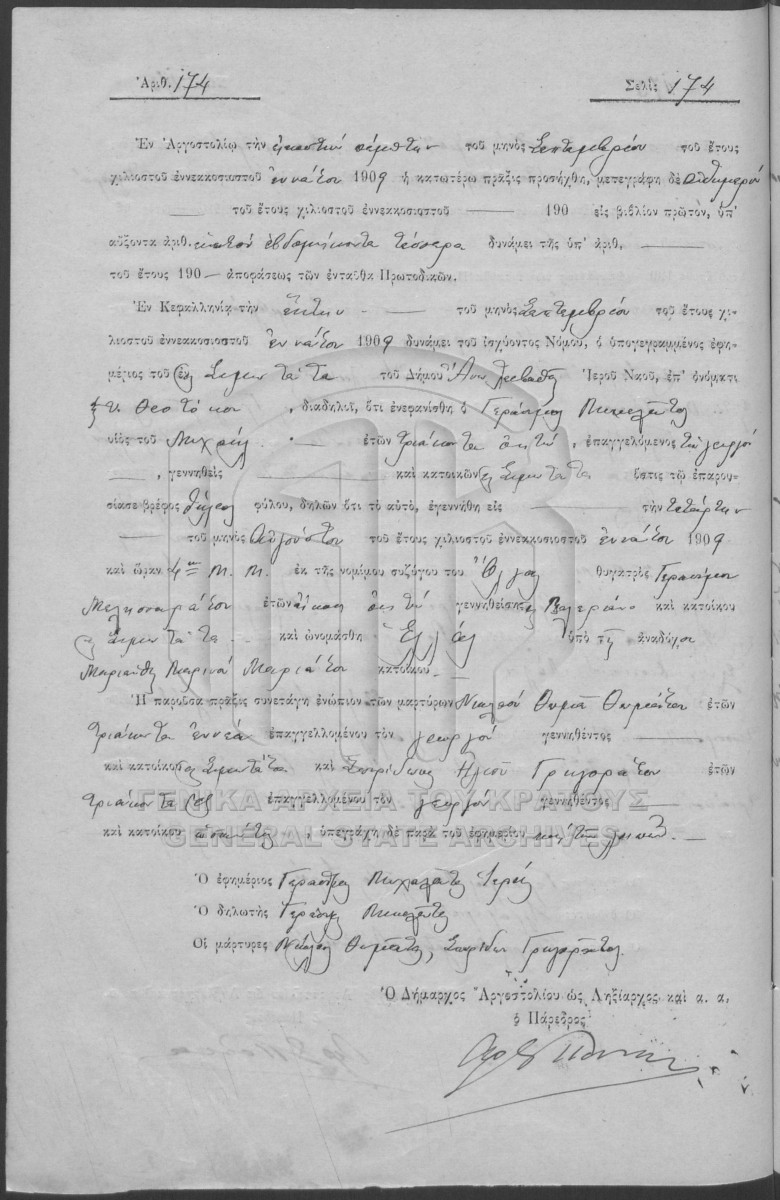 Ἀριθ. 174
Σελὶς 174
Ἐν Ἀργοστολίῳ τὴν εἰκοστὴν πέμπτην τοῦ μηνὸς Σεπτεμβρίου τοῦ ἔτους
χιλιοστοῦ ἐννεακοσιοστοῦ ἐννάτου 1909 ἡ κατωτέρω πρᾶξις προσήχθη, μετεγράφη δὲ αὐθημερόν
τοῦ ἔτους χιλιοστοῦ ἐννεακοσιοστοῦ — 190 εἰς βιβλίον πρῶτον, ὑπ'
αὔξοντα ἀριθ. ἑκατὸν ἑβδομήκοντα τέσσαρα δυνάμει τῆς ὑπ' ἀριθ. —
τοῦ ἔτους 190 — ἀποφάσεως τῶν ἐνταῦθα Πρωτοδικῶν.
Ἐν Κεφαλληνίᾳ τὴν ἕκτην — τοῦ μηνὸς Σεπτεμβρίου τοῦ ἔτους χι-
λιοστοῦ ἐννεακοσιοστοῦ ἐννάτου 1909 δυνάμει τοῦ ἰσχύοντος Νόμου, ὁ ὑπογεγραμμένος ἐφη-
μέριος τοῦ ἐν Σιμωτάτα τοῦ Δήμου Ἄνω Λειβαθοῦς Ἱεροῦ Ναοῦ, ἐπ' ὀνόματι
Θεοτόκου, διαδηλοῖ, ὅτι ἐνεφανίσθη ὁ Γεράσιμος
υἱὸς τοῦ Μιχαὴλ — ἐτῶν τριάκοντα ὀκτώ, ἐπαγγελόμενος τὸν γεωργόν
—, γεννηθεὶς — καὶ κατοικῶν ἐν Σιμωτάτα ὅστις τῷ ἐπαρου-
σίασε βρέφος θήλεος φύλου, δηλῶν ὅτι τὸ αὐτό, ἐγεννήθη εἰς — τὴν τετάρτην
— τοῦ μηνὸς Αὐγούστου τοῦ ἔτους χιλιοστοῦ ἐννεακοσιοστοῦ ἐννάτου 1909
καὶ ὥραν 4ην Μ. Μ. ἐκ τῆς νομίμου συζύγου του Ὄλγας θυγατρὸς Γερασίμου
Μελισσαράτου ἐτῶν εἴκοσι ὀκτώ γεννηθείσης Βαλεριάνο καὶ κατοίκου
ἐν Σιμωτάτα — καὶ ὠνομάσθη ὑπὸ τῆς ἀναδόχου
Μαριάνθης Μαρινοῦ Μαριάτου κατοίκου —
Ἡ παροῦσα πρᾶξις συνετάγη ἐνώπιον τῶν μαρτύρων Νικολάου Θωμᾶ Θωμάτου ἐτῶν
τριάκοντα ἐννέα ἐπαγγελλομένου τὸν γεωργόν γεννηθέντος —
καὶ κατοίκου ἐν Σιμωτάτα καὶ Σπυρίδωνος Ἠλιοῦ Γρηγοράτου ἐτῶν
τριάκοντα ἓξ ἐπαγγελλομένου τὸν γεωργόν γεννηθέντος —
καὶ κατοίκου ὡσαύτως, ὑπεγράφη δὲ παρὰ τοῦ ἐφημερίου καὶ τῶν λοιπῶν. —
ΓΕΝΙΚΑ ΑΡΧΕΙΑ ΤΟΥ ΚΡΑΤΟΥΣ
GENERAL STATE ARCHIVES
Ὁ ἐφημέριος Γεράσιμος Μιχαλάτος Ἱερεύς
Ὁ δηλωτὴς Γεράσιμος
Οἱ μάρτυρες Νικόλαος Θωμάτος, Σπυρίδων Γρηγοράτος.
Ὁ Δήμαρχος Ἀργοστολίου ὡς Ληξίαρχος καὶ α. α.
ὁ Πάρεδρος